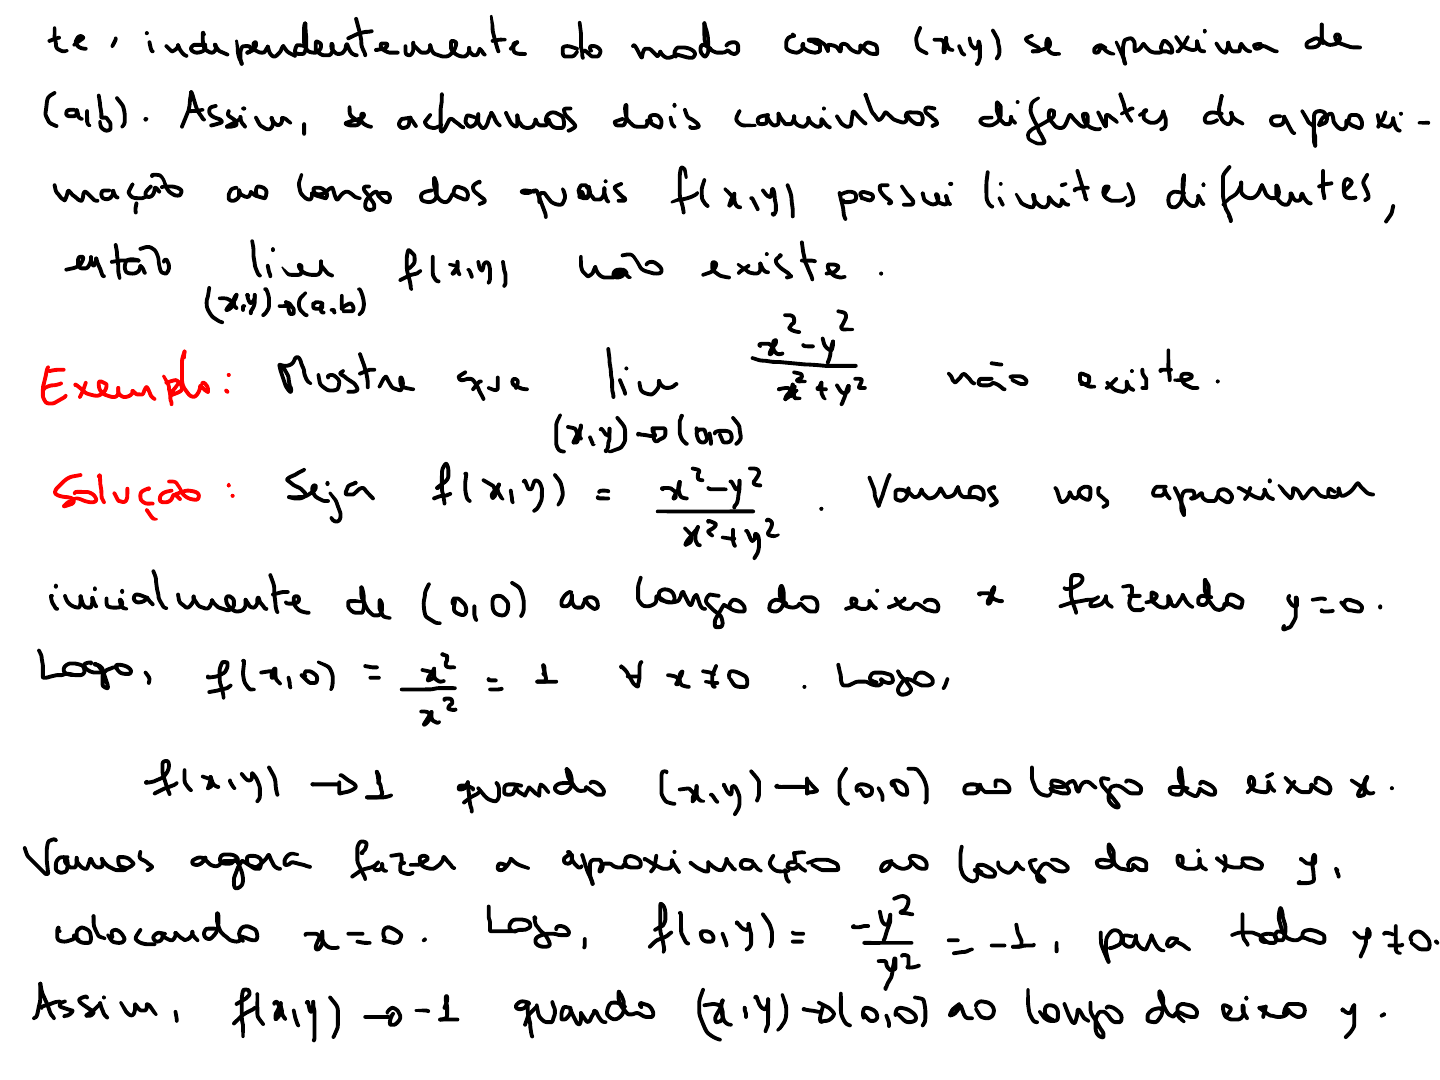 te, independentemente do modo como (x,y) se aproxima de
(a,b). Assim, se acharmos dois caminhos diferentes de aproxi-
mação ao longo dos quais f(x,y) possui limites diferentes,
então lim f(x,y) não existe.
(x,y)→(a,b)
Exemplo: Mostre que lim (x,y)→(0,0) \frac{x²-y²}{x²+y²} não existe.
Solução: Seja f(x,y) = \frac{x²-y²}{x²+y²}. Vamos nos aproximar
inicialmente de (0,0) ao longo do eixo x fazendo y=0.
Logo, f(x,0) = \frac{x²}{x²} = 1 ∀ x≠0. Logo,
f(x,y) → 1 quando (x,y) → (0,0) ao longo do eixo x.
Vamos agora fazer a aproximação ao longo do eixo y,
colocando x=0. Logo, f(0,y) = \frac{-y²}{y²} = -1, para todo y≠0.
Assim, f(x,y) → -1 quando (x,y)→(0,0) ao longo do eixo y.